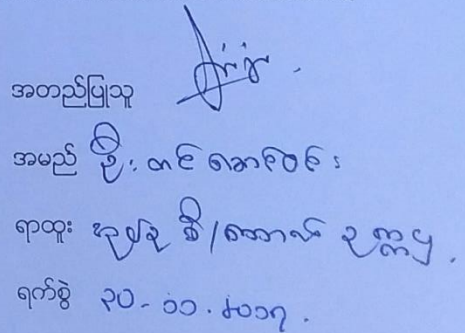 အတည်ပြုသူ
အမည် ဦး တင်အောင်ဝင်း
ရာထူး အုပ်စု ဥက္ကဋ္ဌ
ရက်စွဲ ၃၀-၁၁-၂၀၁၇